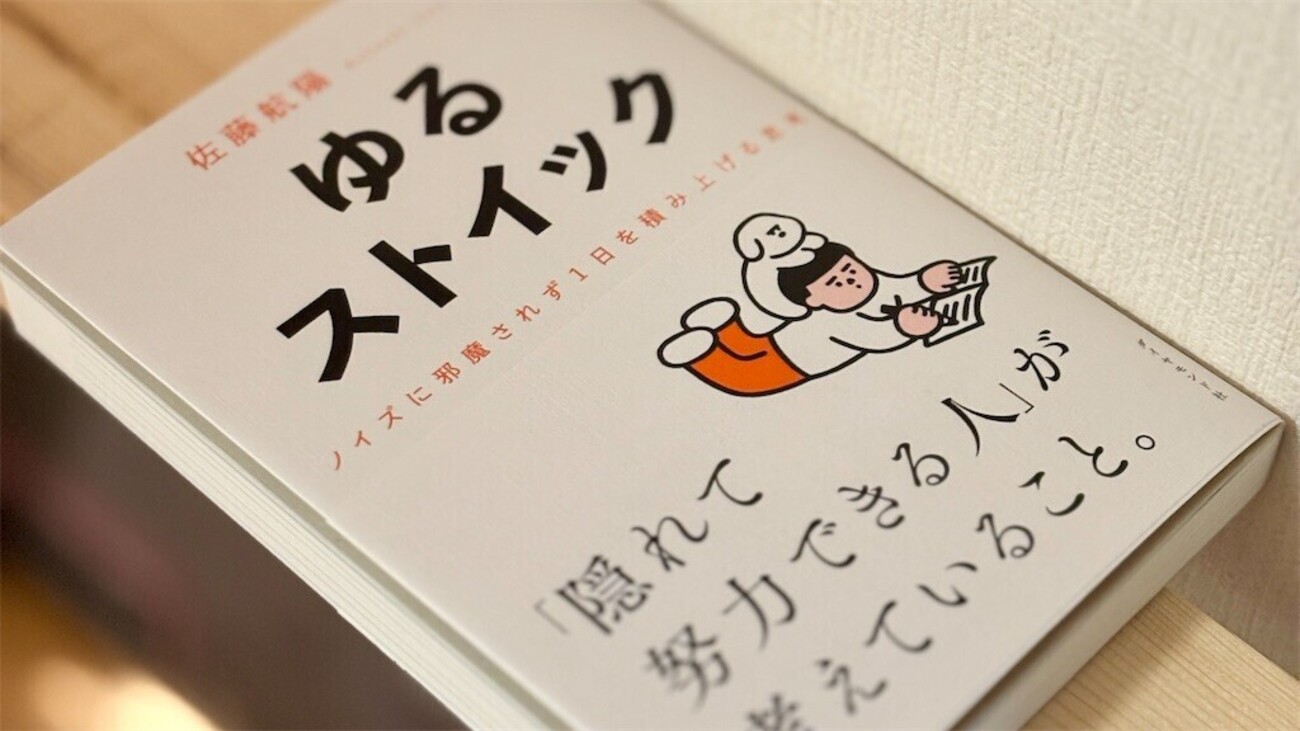 佐藤航陽
ゆる
ストイック
ノイズに邪魔されず1日を積み上げる思考
ダイヤモンド社
「隠れて
努力できる人」が
考えていること。